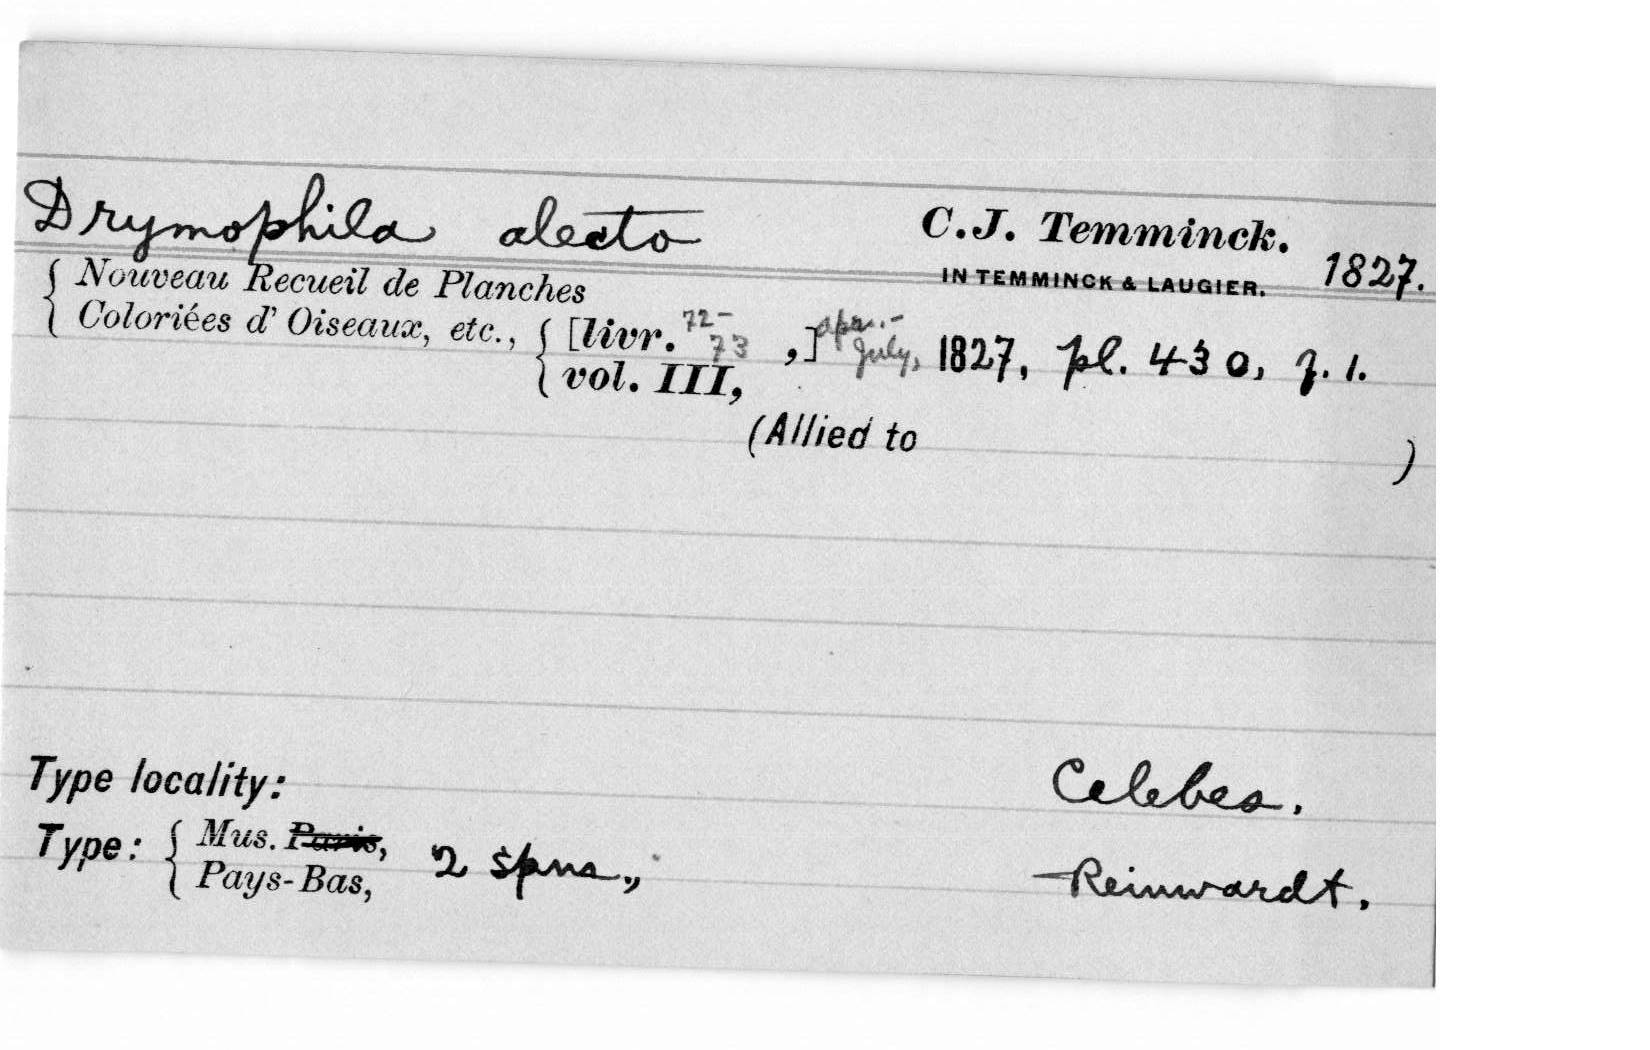 Drymophila alecto C.J. Temminck.
IN TEMMINCK & LAUGIER. 1827.
Nouveau Recueil de Planches
Coloriées d'Oiseaux, etc., [livr. 72-73,] Apr.-July, 1827, pl. 430, f. 1.
vol. III,
(Allied to )
Type locality: Celebes.
Type: Mus. Paris,
Pays-Bas, 2 spns., Reinwardt.